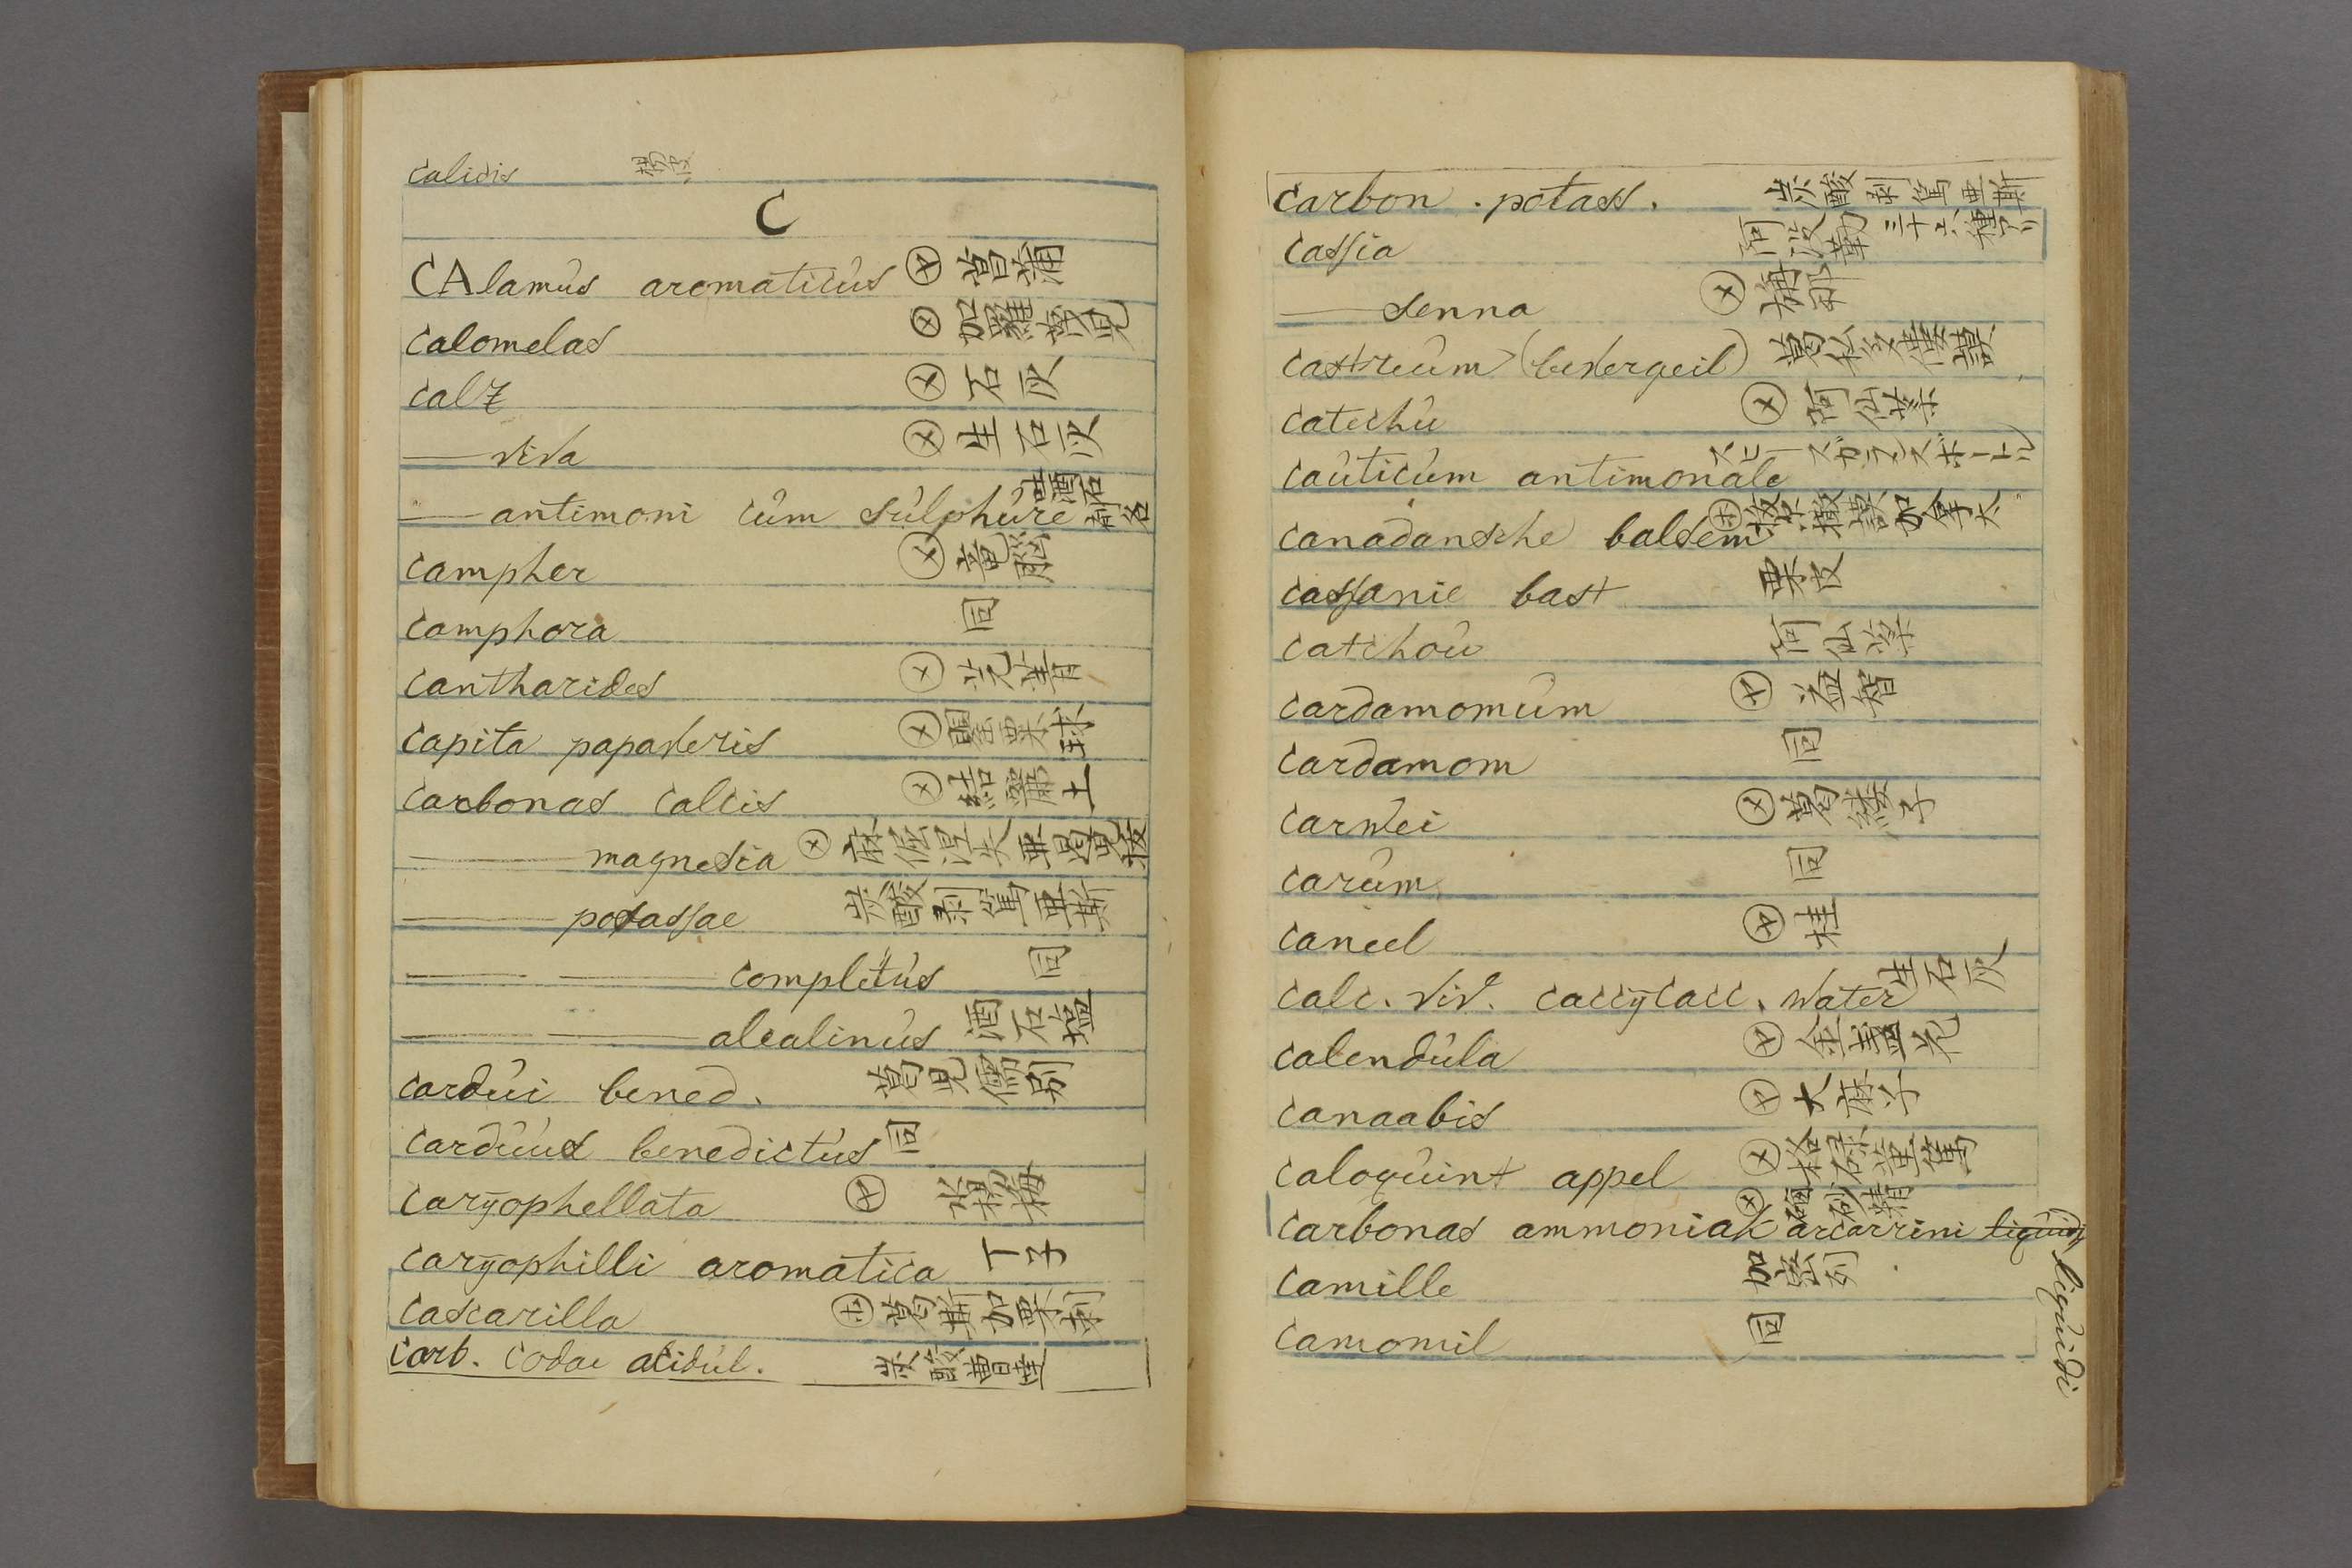 calidis
C
CAlamus aromaticus ⊗ 菖蒲
calomelas ⊗ 加羅
calz ⊗ 石灰
—— viva ⊗ 生石灰
—— antimoni cum sulphure 吐酒石
campher ⊗ 竜脳
camphora 同
cantharides ⊗ 芫青
capita papaveris ⊗ 罌粟球
carbonas calcis ⊗ 結麗土
—— magnesia ⊗ 麻倔涅失亜
—— potassae 炭酸剥篤亜斯
—— —— completus 同
—— —— alcalinus 酒石塩
cardui bened.
carduus benedictus 同
caryophellata ⊗ 水楊梅
caryophilli aromatica 丁子
cascarilla 葛斯加栗刺
carb. codae acidul. 炭酸曹達
carbon. potass. 炭酸剥篤亜斯
cassia 阿没勒
—— senna ⊗ 旃那
castreum (bevergeil)
catechu ⊗ 阿仙薬
cauticum antimonale スピースガランスボートル
canadansche balsem 拔爾撒謨加拿太
cassanie bast 栗皮
catchou 阿仙薬
cardamomum ⊗ 益智
cardamom 同
carwei ⊗ 葛縷子
carum 同
caneel ⊗ 桂
calc. viv. caccycacc. water 生石灰
calendula ⊗ 金盞花
canaabis ⊗ 大麻子
caloquint appel ⊗ 格碌菫篤
carbonas ammoniak arcarrini liquidi ⊗ 磠砂精
liquidi
camille 加密列
camomil 同